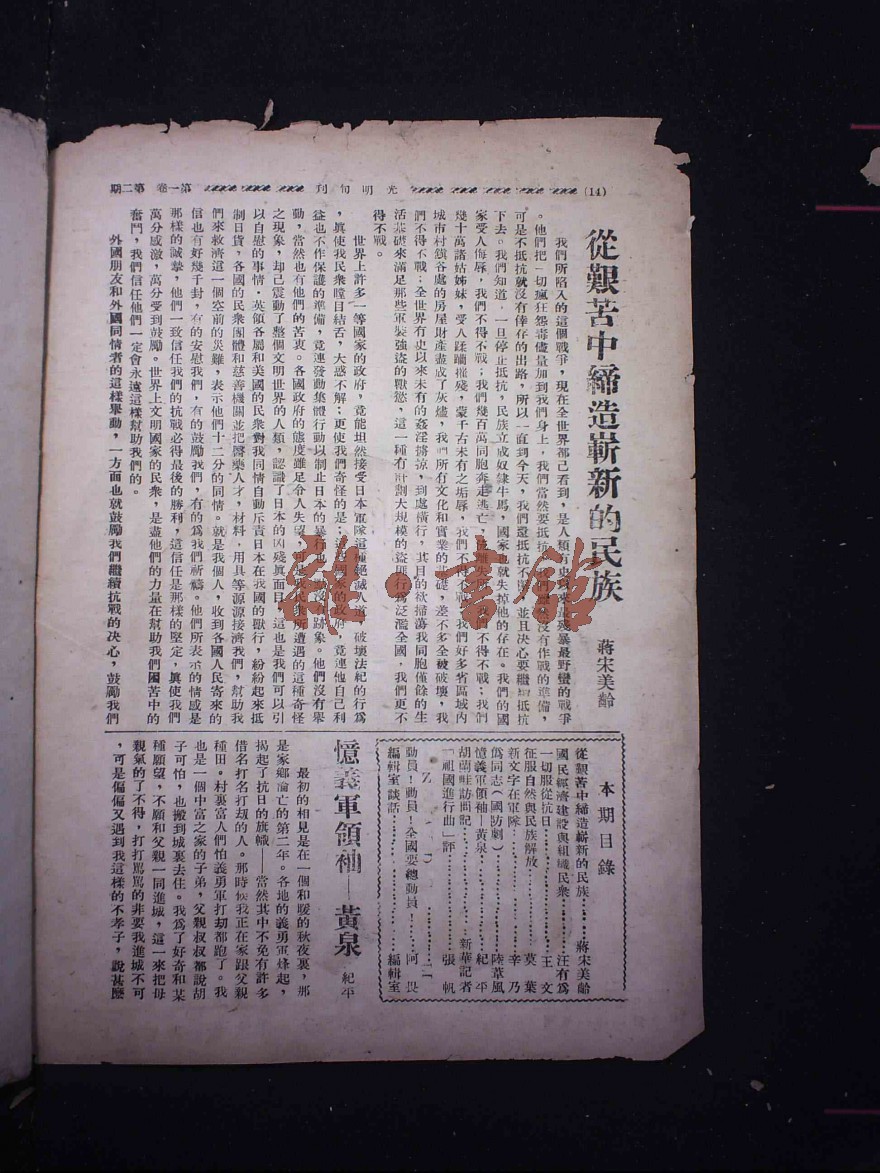 (14)
光明旬刊
第一卷 第二期
從艱苦中締造嶄新的民族
蔣宋美齡
我們所陷入的這個戰爭，現在全世界都已看到，是人類有史以來最殘暴最野蠻的戰爭
。他們把一切瘋狂怨毒儘量加到我們身上，我們當然要抵抗，我們雖然沒有作戰的準備，
可是不抵抗就沒有倖存的出路，所以一直到今天，我們還抵抗不懈，並且決心要繼續抵抗
下去。我們知道，一旦停止抵抗，民族立成奴隸牛馬，國家也就失掉他的存在。我們的國
家受人侮辱，我們不得不戰；我們幾百萬同胞奔走逃亡，流離失所，我們不得不戰；我們
幾十萬諸姑姊妹，受人蹂躪摧殘，蒙千古未有之垢辱，我們不得不戰；我們好多省區域內
城市村鎮各處的房屋財產盡成了灰燼，我們所有文化和實業的基礎，差不多全被破壞，我
們不得不戰；全世界有史以來未有的姦淫擄掠，到處橫行，其目的欲掃蕩我同胞僅餘的生
活基礎來滿足那些軍裝強盜的戰慾，這一種有計劃大規模的盜匪行為泛濫全國，我們更不
得不戰。
世界上許多一等國家的政府，竟能坦然接受日本軍隊這種絕滅人道，破壞法紀的行為
，眞使我民衆瞠目結舌，大惑不解；更使我們奇怪的是：這些國家的政府，竟連他自己利
益也不作保護的準備，竟連發動集體行動以制止日本的暴行也一點沒有跡象。他們沒有舉
動，當然也有他們的苦衷。各國政府的態度雖足令人失望，可是我民衆所遭遇的這種奇怪
之現象，却已震動了整個文明世界的人類，認識了日本的凶殘眞面目，這也是我們可以引
以自慰的事情·英領各屬和美國的民衆對我同情自動斥責日本在我國的獸行，紛紛起來抵
制日貨，各國的民衆團體和慈善機關並把醫藥人才，材料，用具等源源接濟我們，幫助我
們來救濟這一個空前的災難，表示他們十二分的同情。就是我個人，收到各國人民寄來的
信也有好幾千封，有的安慰我們，有的鼓勵我們，有的爲我們祈禱。他們所表示的情感是
那樣的誠摯，他們一致信任我們的抗戰必得最後的勝利，這信任是那樣的堅定，眞使我們
萬分感激，萬分受到鼓勵。世界上文明國家的民衆，是盡他們的力量在幫助我們困苦中的
奮鬥，我們信任他們一定會永遠這樣幫助我們的。
外國朋友和外國同情者的這樣舉動，一方面也就鼓勵我們繼續抗戰的决心，鼓勵我們
本期目錄
從艱苦中締造嶄新的民族……蔣宋美齡
國民經濟建設與組織民衆……汪有爲
一切服從抗日……王文
征服自然與民族解放……莫葉
新文字在軍隊……辛乃
僞同志（國防劇）……陸葦風
憶義軍領袖—黃泉……紀平
胡蘭畦訪問記……新華記者
「祖國進行曲」評……張帆
動員！動員！全國要總動員！……阿畏
編輯室談話……編輯室
憶義軍領袖——黃泉
紀平
最初的相見是在一個和暖的秋夜裏，那
是家鄉淪亡的第二年。各地的義勇軍烽起，
揭起了抗日的旗幟——當然其中不免有許多
借名打名打刼的人。那時候我正在家跟父親
種田。村裏富人們怕義勇軍打刼都跑了。我
也是一個中富之家的子弟，父親叔叔都說胡
子可怕，也搬到城裏去住。我爲了好奇和某
種願望，不願和父親一同進城，這一來把母
親氣的了不得，打打罵罵的非要我進城不可
，可是偏偏又遇到我這樣的不孝子，說甚麼